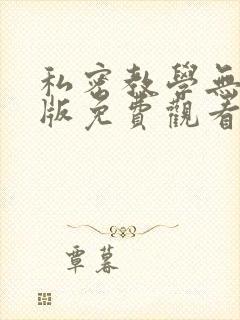 私密教學無
版免費觀看
覃暮